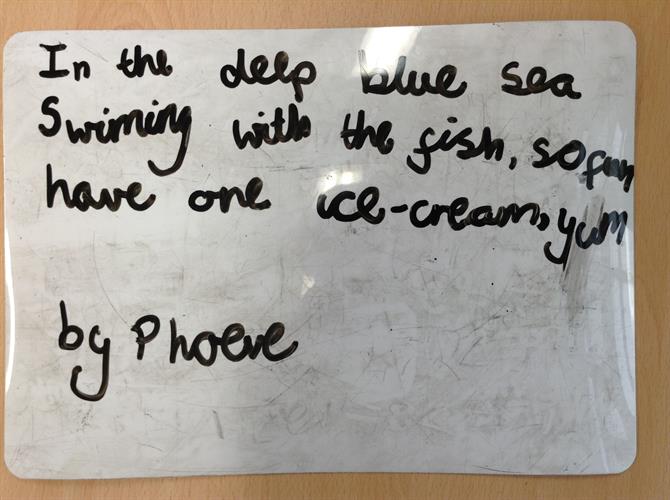 In the deep blue sea
Swiming with the fish, so fun
have one ice-cream, yum
by Phoeve